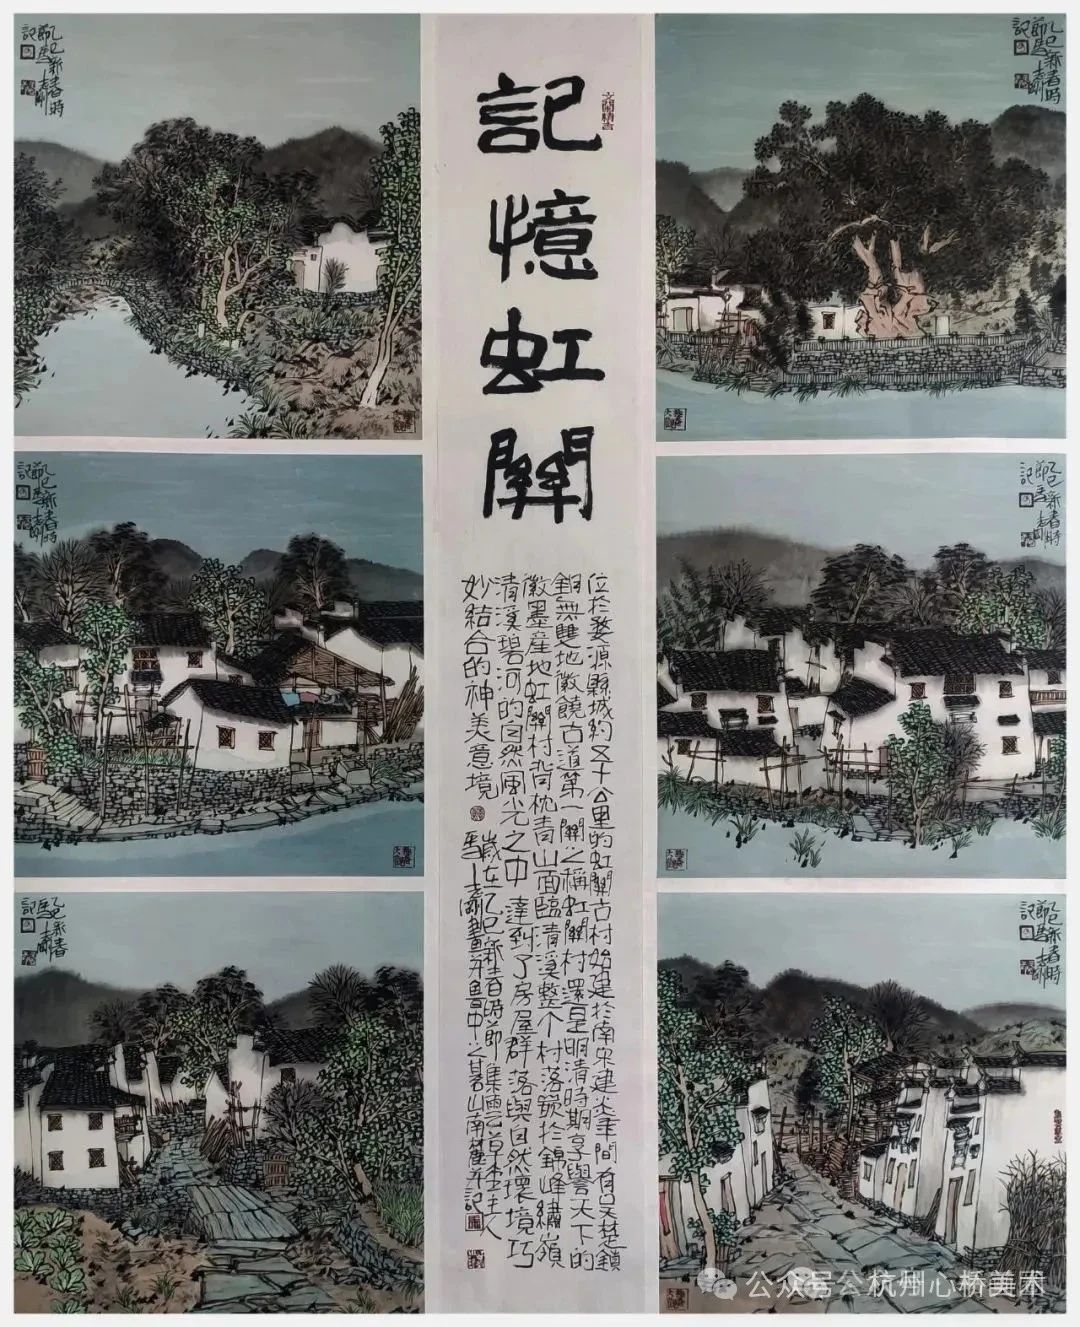 記憶虹關
位於婺源縣城約五十公里的虹關古村始建於南宋建炎年間有吴楚鎖
鑰無雙地徽饒古道第一關之稱虹關村還是明清時期享譽天下的
徽墨産地虹關村北枕青山面臨清溪整个村落嵌於錦峰繡嶺
清溪碧河的自然風光之中達到了房屋群落與自然环境巧
妙結合的神美意境
歲在乙巳新春時節集
乙巳新春時
節馬士剛
記
乙巳新春時
節馬士剛
記
乙巳新春時
節馬士剛
記
乙巳新春時
節馬士剛
記
乙巳新春
節馬士剛
記
乙巳新春時
節馬士剛
記
公众号 杭州心桥美术